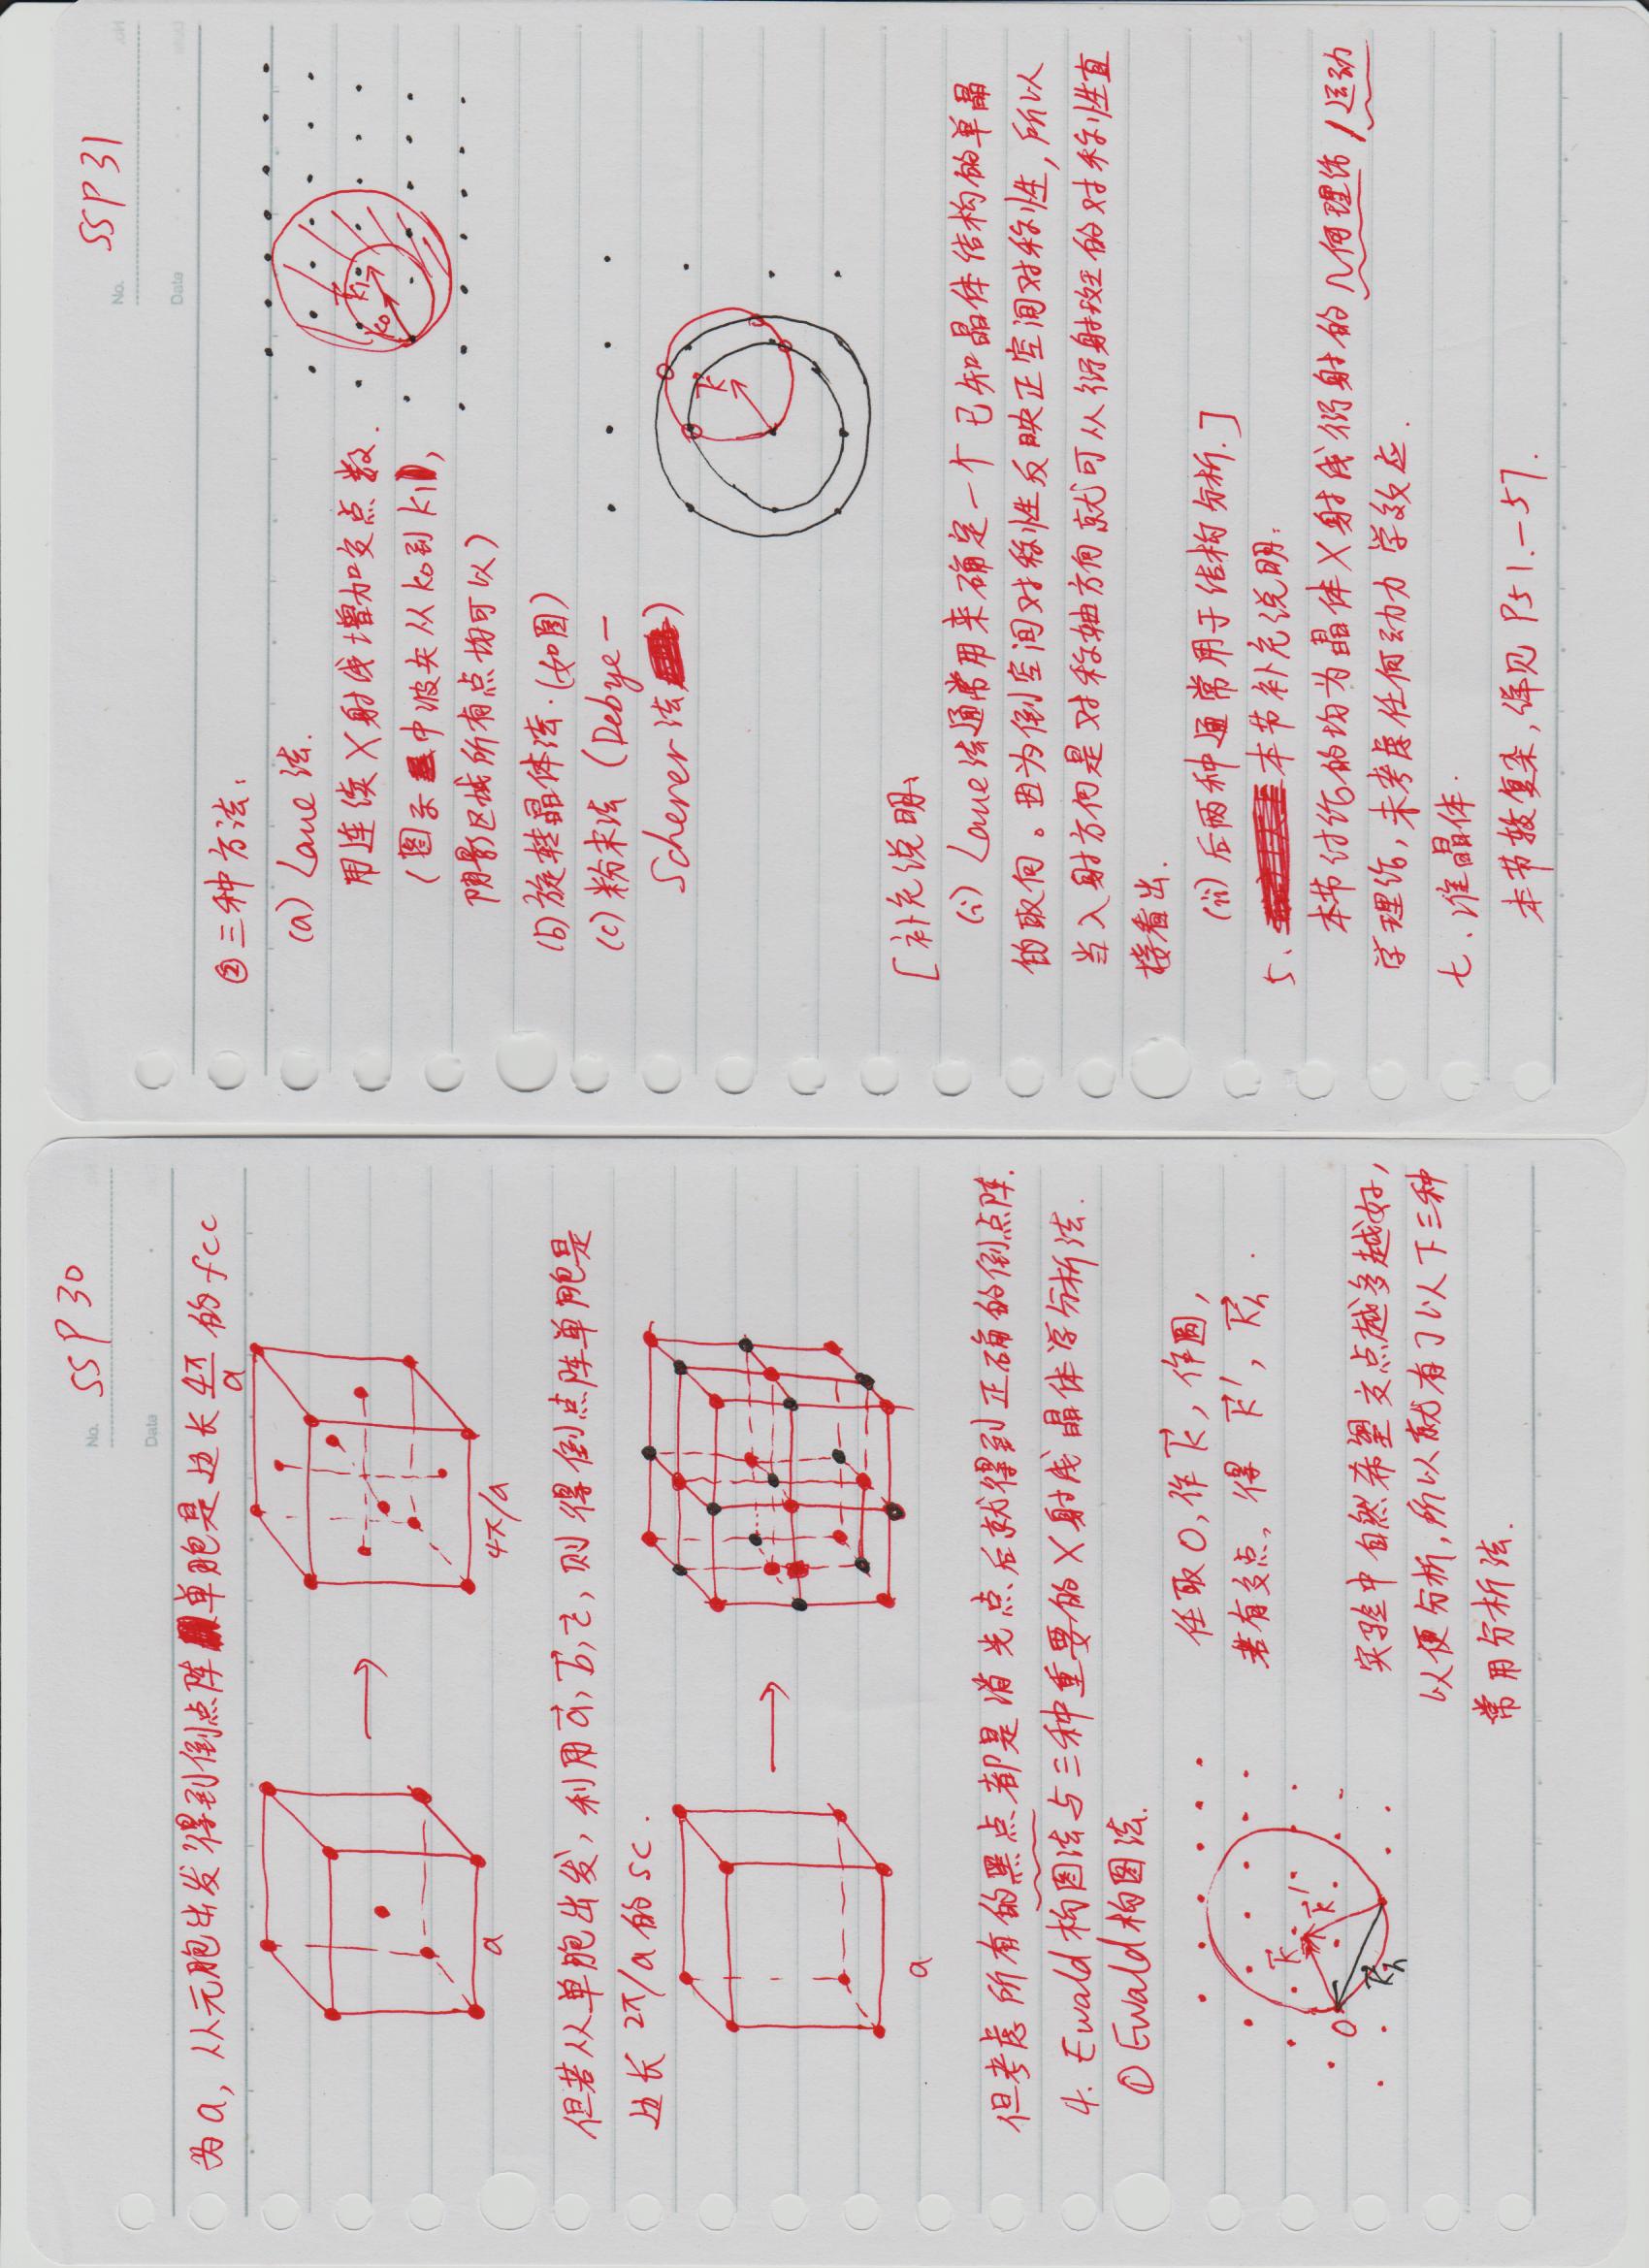 No. SSP 30
Date
为a, 从元胞出发得到倒点阵单胞是边长 4π/a 的 fcc
a
4π/a
但若从单胞出发, 利用 a⃗, b⃗, c⃗, 则得倒点阵单胞是
边长 2π/a 的 sc.
a
但考虑所有的黑点都是消光点后就得到正确的倒点阵.
4. Ewald 构图法与三种重要的X射线晶体学分析法.
① Ewald 构图法.
任取O, 作 k⃗, 作圆,
若有交点, 得 k⃗', K⃗h.
k⃗
k⃗'
O
K⃗h
实验中自然希望交点越多越好,
以便分析, 所以就有了以下三种
常用分析法.
No. SSP 31
Date
② 三种方法:
(a) Laue 法.
用连续X射线增加交点数.
(图示中波矢从 k0 到 k1,
阴影区域所有点均可以)
k0
k⃗1
(b) 旋转晶体法. (如图)
(c) 粉末法 (Debye-
Scherrer 法)
k⃗
[补充说明:
(i) Laue法通常用来确定一个已知晶体结构的单晶
的取向。因为倒空间对称性反映正空间对称性, 所以
当入射方向是对称轴方向就可从衍射斑的对称性直
接看出.
(ii) 后两种通常用于结构分析.]
5. 本节补充说明:
本节讨论的均为晶体X射线衍射的几何理论/运动
学理论, 未考虑任何动力学效应.
七. 准晶体.
本节较复杂, 详见 P51.-57.